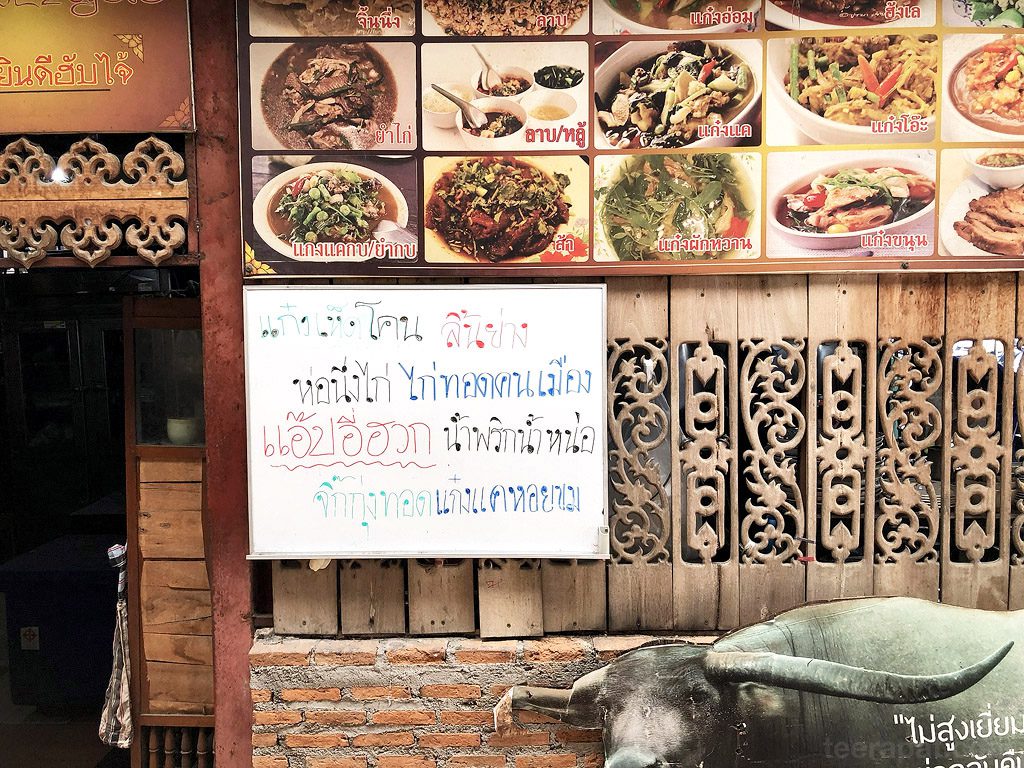 ยินดีฮับไจ้
จิ้นนึ่ง ลาบ แก๋งอ่อม ฮังเล
ยำไก่ ลาบ/หลู้ แก๋งแค แก๋งโฮะ
แกงแคกบ/ยำกบ ส้า แก๋งผักหวาน แก๋งขนุน
แก๋งเห็ดโคน ลิ้นย่าง
ห่อนึ่งไก่ ไก่ทอดคนเมือง
แอ๊บอี่ฮวก น้ำพริกน้ำหน่อ
จี๊กุ่งทอด แก๋งแคหอยขม
"ไม่สูงเยี่ยม